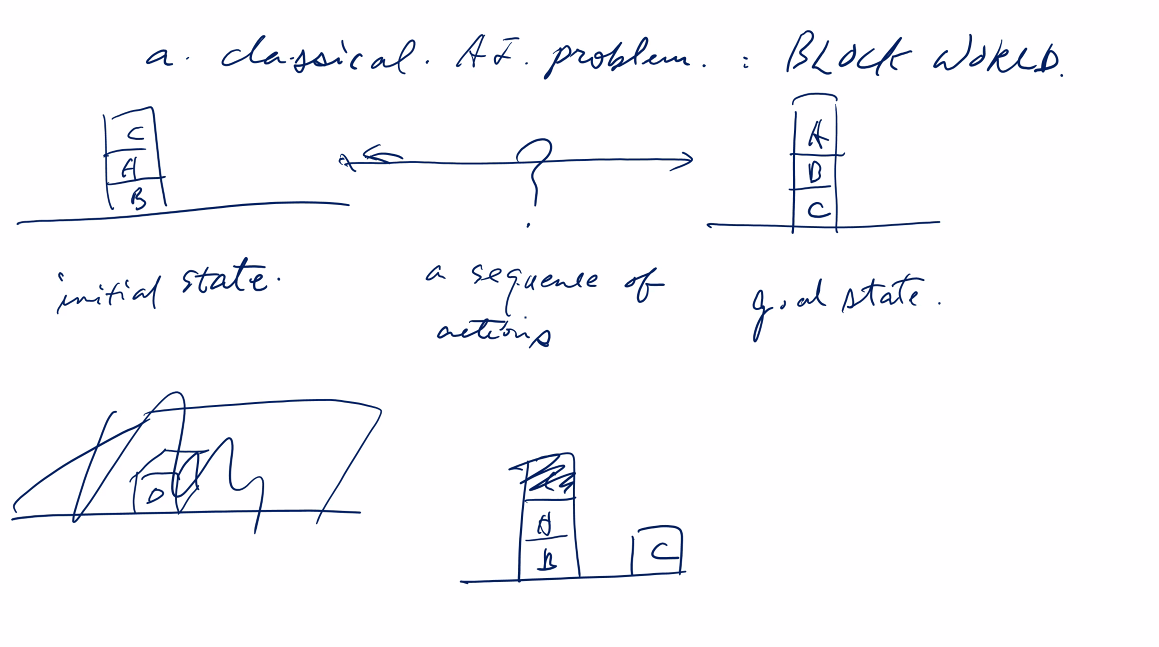 a. classical. AI. problem. : BLOCK WORLD.
C
A
B
?
A
B
C
initial state.
a sequence of
actions
goal state.
A
B
C